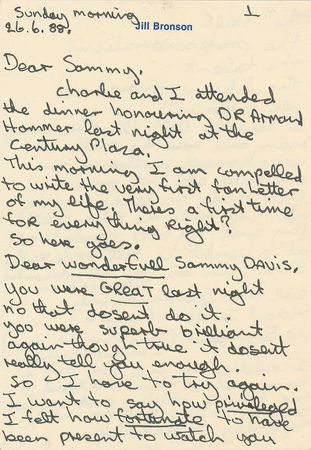 Sunday morning 1
26.6.88. Jill Bronson
Dear Sammy.
Charlie and I attended
the dinner honouring DR Armand
Hammer last night at the
Century Plaza.
This morning I am compelled
to write the very first fan letter
of my life. Theres a first time
for everything Right?
So here goes.
Dear wonderfull Sammy DAVIS.
You were GREAT last night
no that dosent do it.
you were superb brilliant
again though true it dosent
really tell you enough.
So I have to try again.
I want to say how privileged
I felt how fortunate to have
been present to watch you